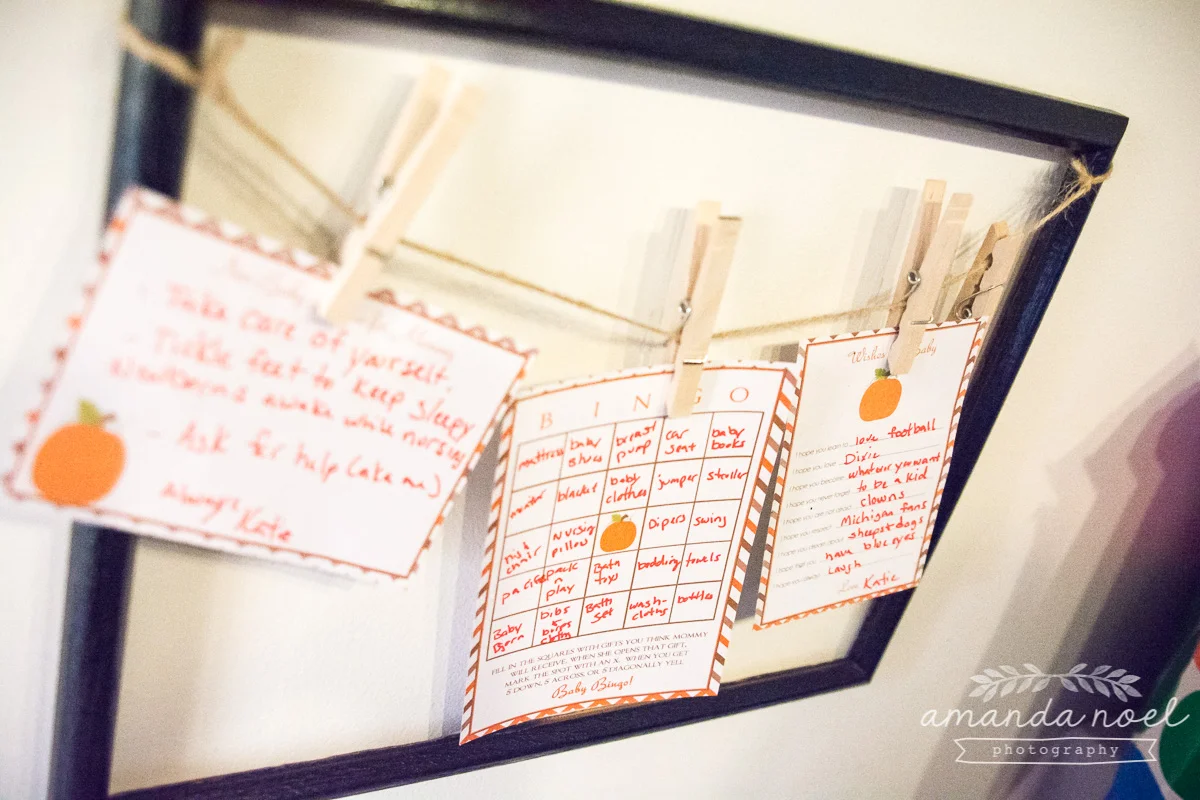 Take care of yourself.
- Tickle feet to keep sleepy
Newborns awake while nursing
- Ask for help (aka me)
Always Katie
B I N G O
mattress baby shoes breast pump car seat baby books
blanket baby clothes jumper stroller
high chair nursing pillow Dipers swing
pacifier pack n play Bath toys bedding towels
Baby Bjorn bibs & burps cloth Bath set wash-cloths bottles
FILL IN THE SQUARES WITH GIFTS YOU THINK MOMMY
WILL RECEIVE. WHEN SHE OPENS THAT GIFT,
MARK THE SPOT WITH AN X. WHEN YOU GET
5 DOWN, 5 ACROSS, OR 5 DIAGONALLY YELL
Baby Bingo!
Wishes Baby
I hope you learn to love football
I hope you love Dixie
I hope you become whatever you want
I hope you never forget to be a kid
I hope you are not afraid clowns
I hope you respect Michigan fans
I hope you dream about sheepst dogs
I hope that you have blue eyes
I hope you always Laugh
Love Katie
amanda noel
photography